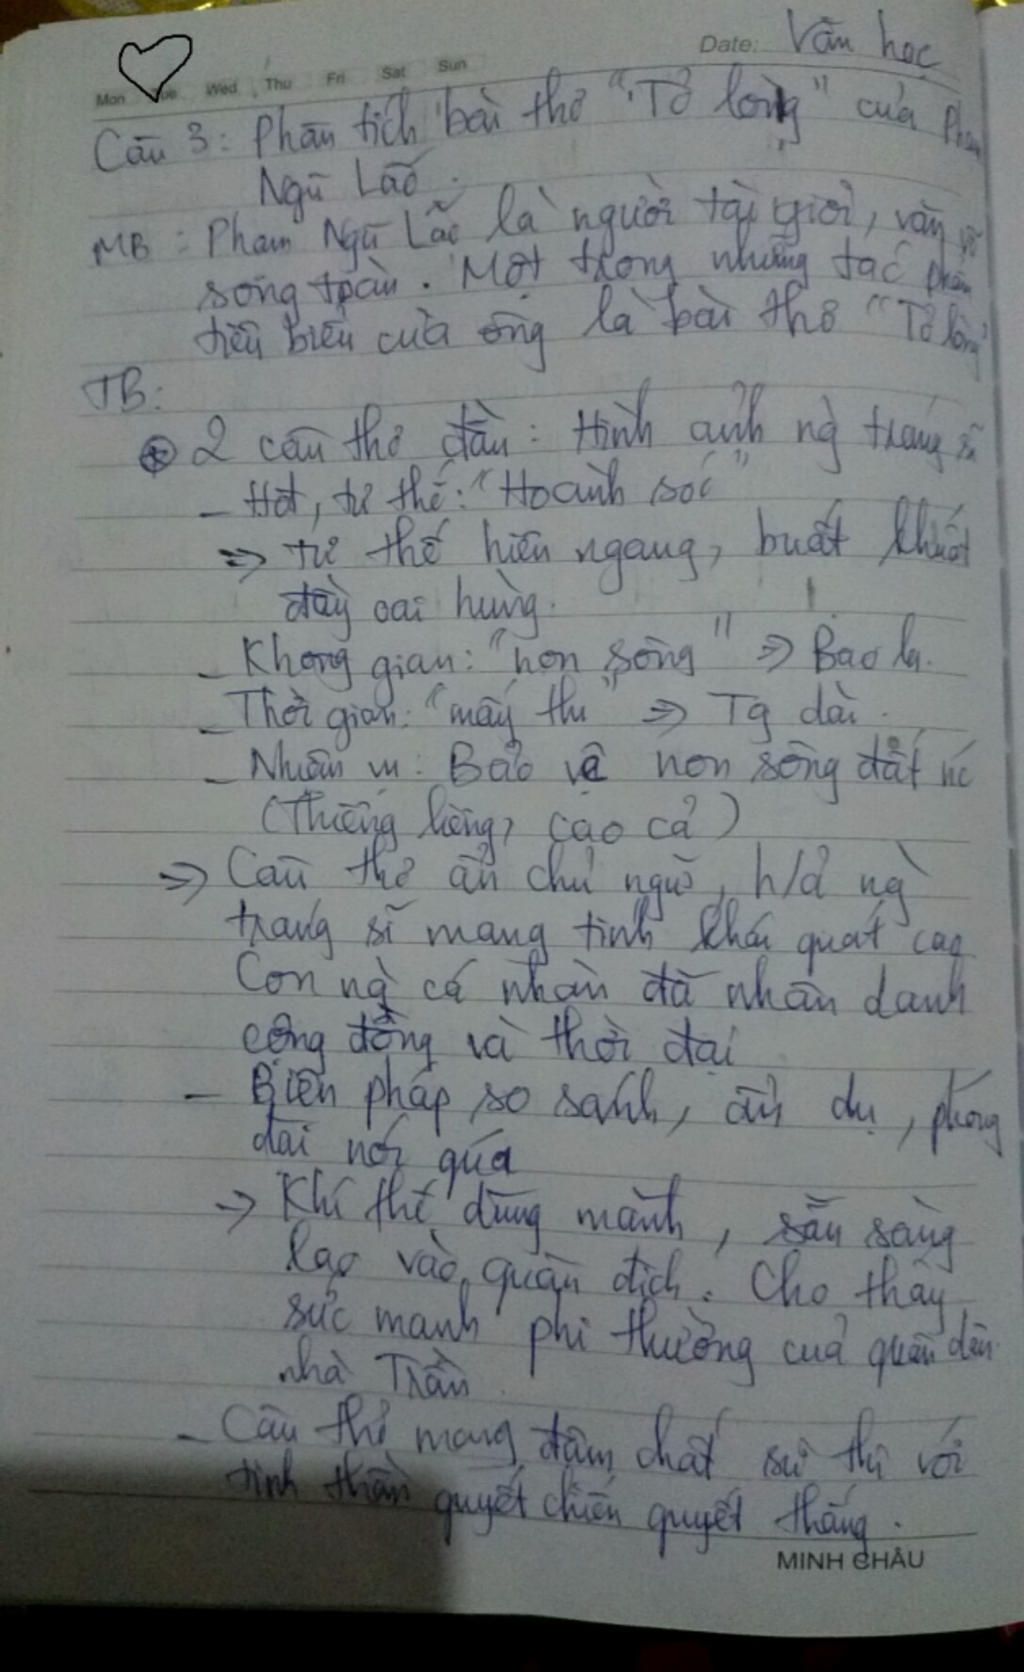 Date: Văn học
Mon Tue Wed Thu Fri Sat Sun
Câu 3: Phân tích bài thơ "Tỏ lòng" của Phạm
Ngũ Lão.
MB: Phạm Ngũ Lão là người tài giỏi, văn võ
song toàn. Một trong những tác phẩm
tiêu biểu của ông là bài thơ "Tỏ lòng"
TB:
2 câu thơ đầu: Hình ảnh ng` tráng sĩ
- Hđ, tư thế: "Hoành sóc"
=> tư thế hiên ngang, buất khuất
đầy oai hùng.
- Không gian: "non sông" => Bao la.
- Thời gian: "mấy thu" => Tg dài.
- Nhiệm vụ: Bảo vệ non sông đất nc
(Thiêng liêng, cao cả)
=> Câu thơ ẩn chủ ngữ, h/ả ng`
tráng sĩ mang tính khái quát cao
Con ng` cá nhân đã nhân danh
cộng đồng và thời đại
- Biện pháp so sánh, ẩn dụ, phóng
đại nói quá
-> Khí thế dũng mãnh, sẵn sàng
lao vào quân địch. Cho thấy
sức mạnh phi thường của quân dân
nhà Trần.
- Câu thơ mang đậm chất sử thi với
tinh thần quyết chiến quyết thắng.
MINH CHÂU